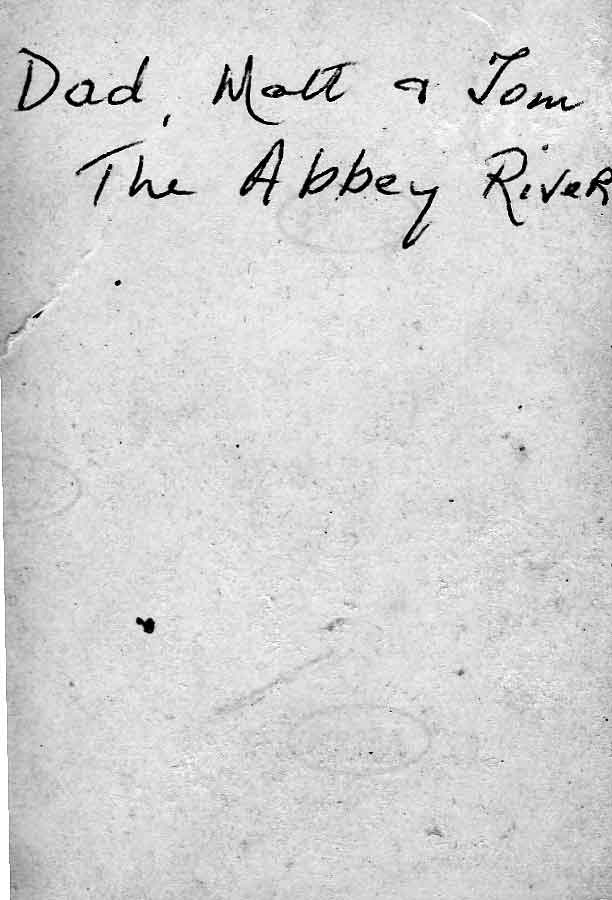 Dad, Matt & Tom
The Abbey River